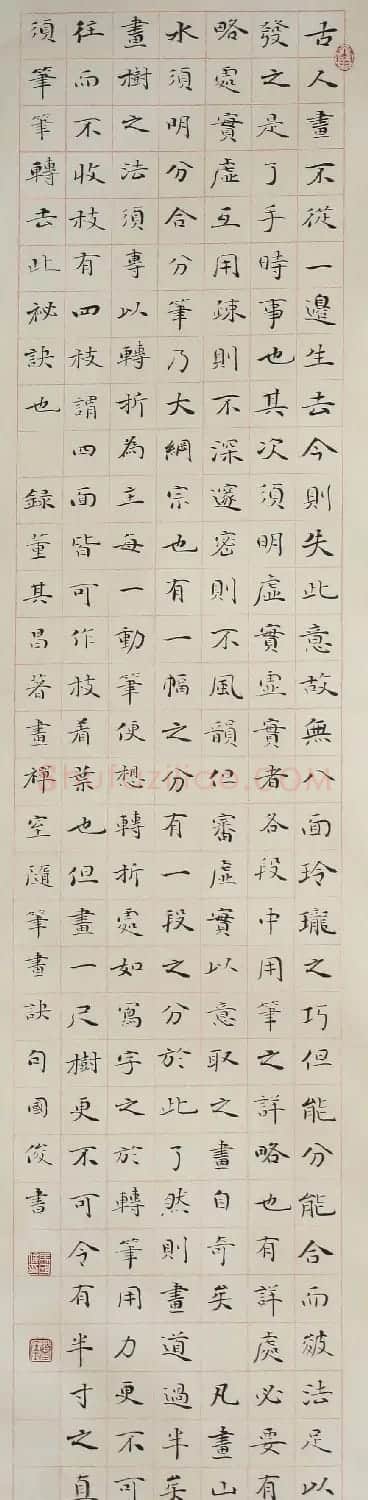 古人畫不從一邊生去今則失此意故無八面玲瓏之巧但能分能合而皴法足以
發之是了手時事也其次須明虛實虛實者各段中用筆之詳略也有詳處必要有
略處實虛互用疎則不深邃密則不風韻但審虛實以意取之畫自奇矣凡畫山
水須明分合分筆乃大綱宗也有一幅之分有一段之分於此了然則畫道過半矣
畫樹之法須專以轉折為主每一動筆便想轉折處如寫字之於轉筆用力更不可
往而不收枝有四枝謂四面皆可作枝着葉也但畫一尺樹更不可令有半寸之直
須筆筆轉去此祕訣也 錄董其昌著畫禪空隨筆畫訣句國俊書